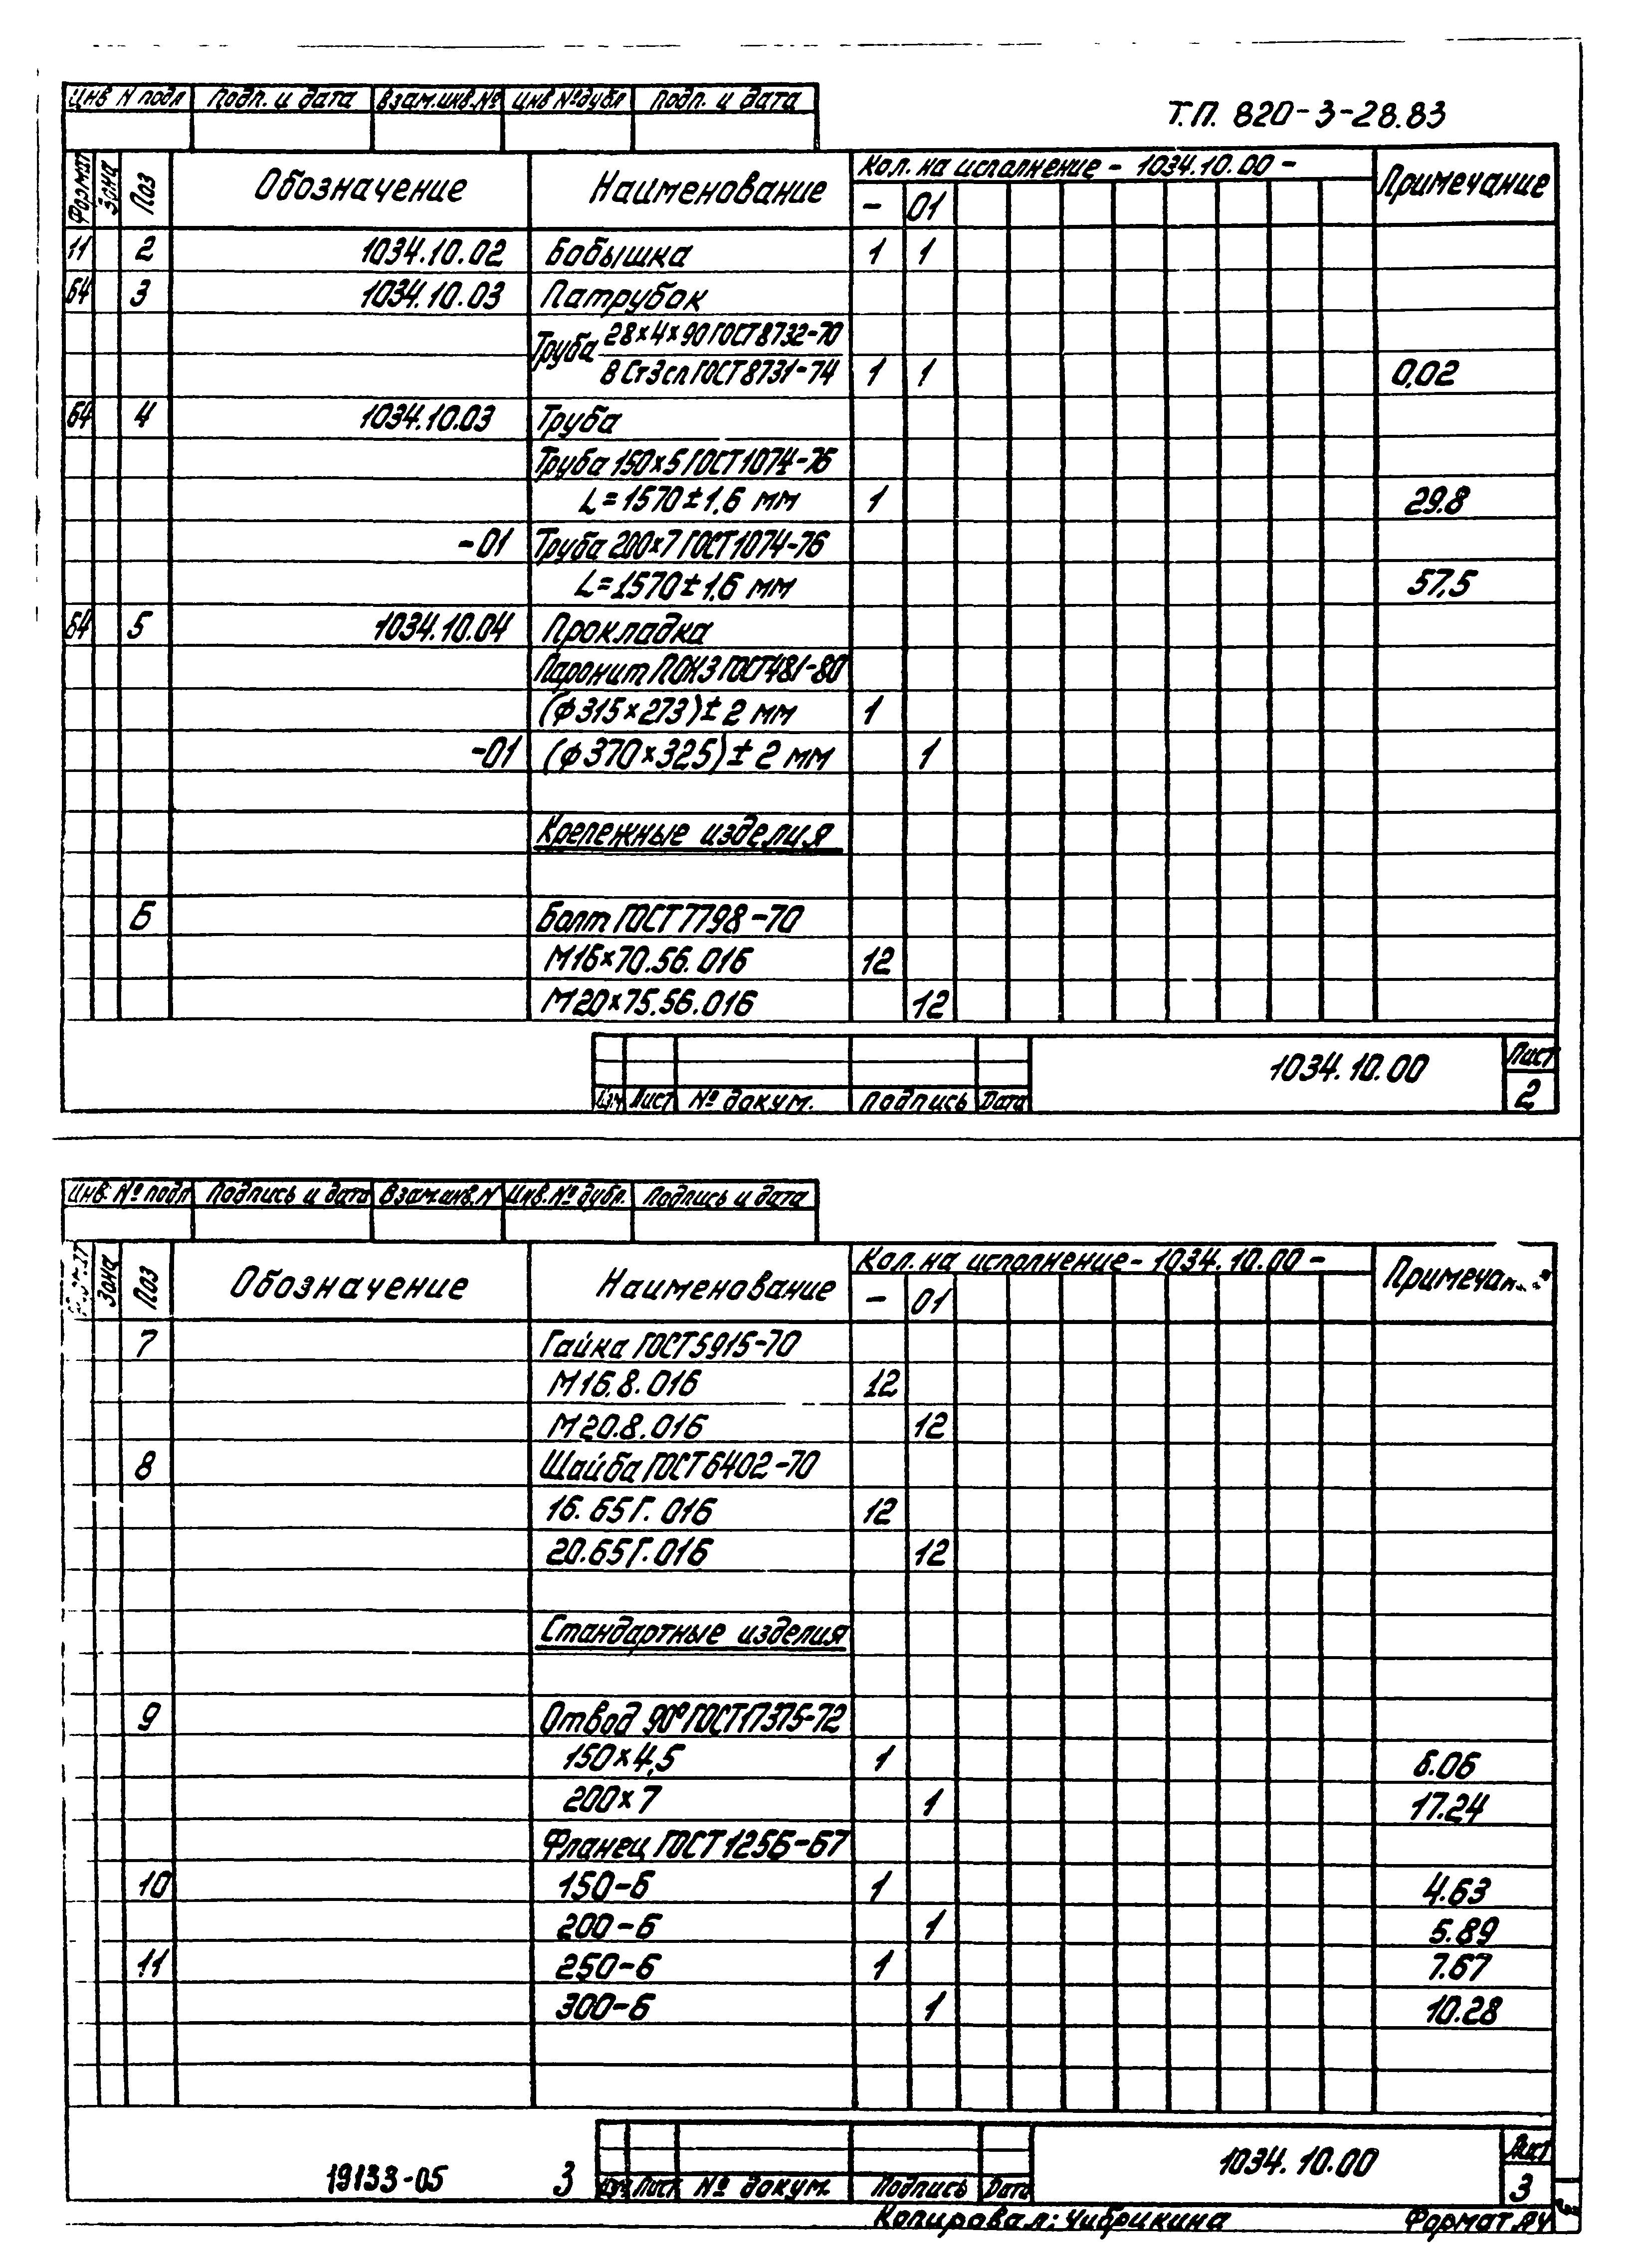 Т.П. 820-3-28.83
Инв N подл Подп. и дата Взам.инв.№ Инв №дубл Подп. и дата
Формат Зона Поз Обозначение Наименование Кол. на исполнение - 1034.10.00 - Примечание
- 01
11 2 1034.10.02 Бобышка 1 1
Б4 3 1034.10.03 Патрубок
Труба 28×4×90 ГОСТ 8732-70
В Ст3сп ГОСТ 8731-74 1 1 0,02
Б4 4 1034.10.03 Труба
Труба 150×5 ГОСТ 1074-76
L=1570±1,6 мм 1 29.8
-01 Труба 200×7 ГОСТ 1074-76
L=1570±1,6 мм 57,5
Б4 5 1034.10.04 Прокладка
Паронит ПОН 3 ГОСТ 481-80
(ф315×273)±2 мм 1
-01 (ф370×325)±2 мм 1
Крепежные изделия
6 Болт ГОСТ 7798-70
М16×70.56.016 12
М20×75.56.016 12
1034.10.00 Лист
2
Изм Лист № докум. Подпись Дата
Инв. № подл Подпись и дата Взам.инв.N Инв.№ дубл. Подпись и дата
Зона Поз Обозначение Наименование Кол. на исполнение - 1034.10.00 - Примечан
- 01
7 Гайка ГОСТ 5915-70
М16.8.016 12
М20.8.016 12
8 Шайба ГОСТ 6402-70
16.65Г.016 12
20.65Г.016 12
Стандартные изделия
9 Отвод 90° ГОСТ 17375-72
150×4,5 1 6.06
200×7 1 17.24
Фланец ГОСТ 1255-67
10 150-6 1 4.63
200-6 1 5.89
11 250-6 1 7.67
300-6 1 10.28
1034.10.00 Лист
3
Изм Лист № докум. Подпись Дата
19133-05 3
Копировал: Чибрикина Формат А4